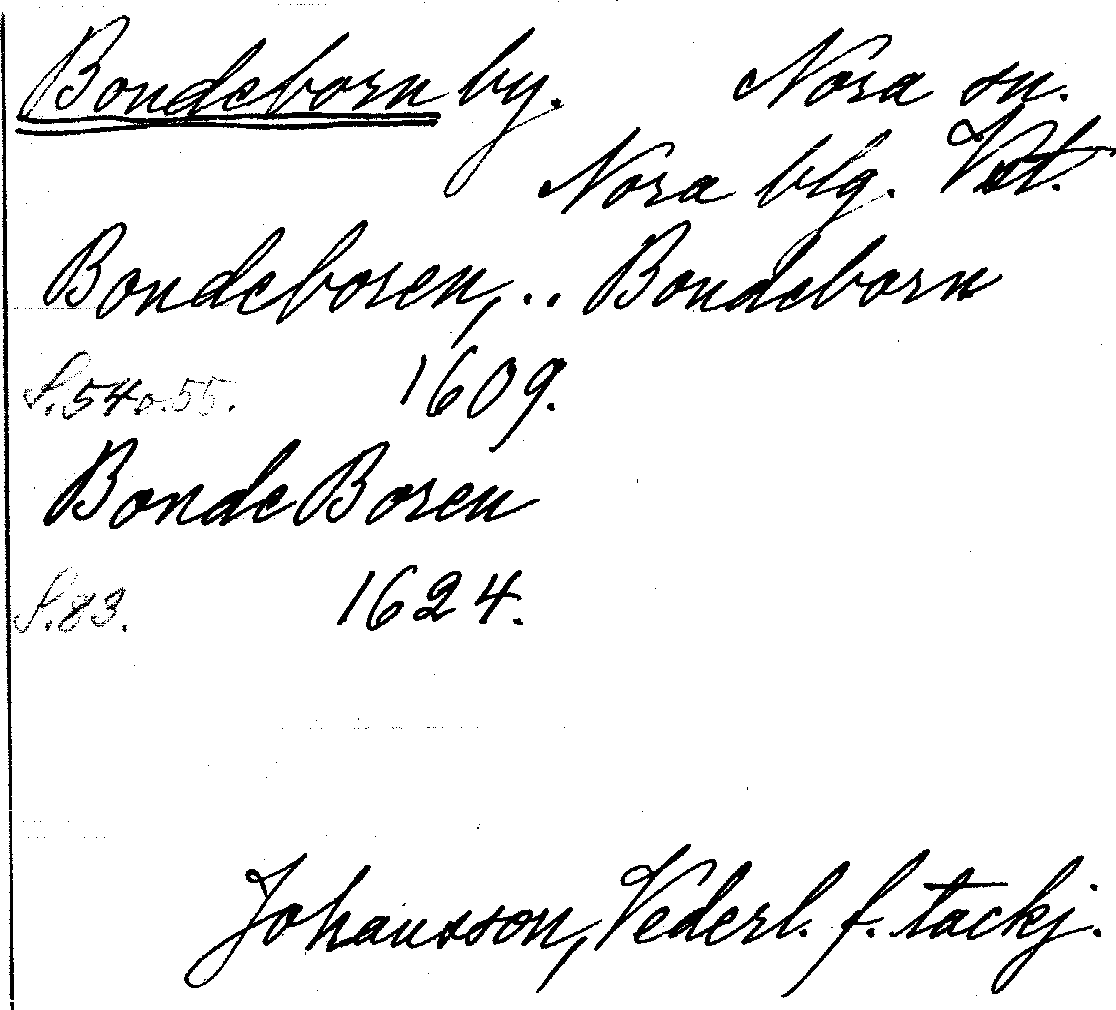 Bondeborn by. Nora sn.
Nora blg. Vstl.
Bondeboren, .. Bondeborn
S. 54 o. 55. 1609.
BondeBoren
S. 83. 1624.
Johansson, Vederl. f. tackj.